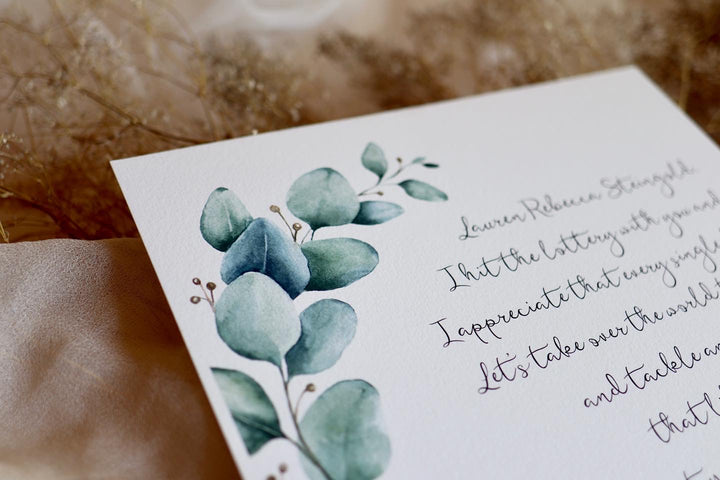 Lauren Rebecca Steingold
I hit the lottery with you and
I appreciate that every single
Let's take over the world
and tackle an
that li